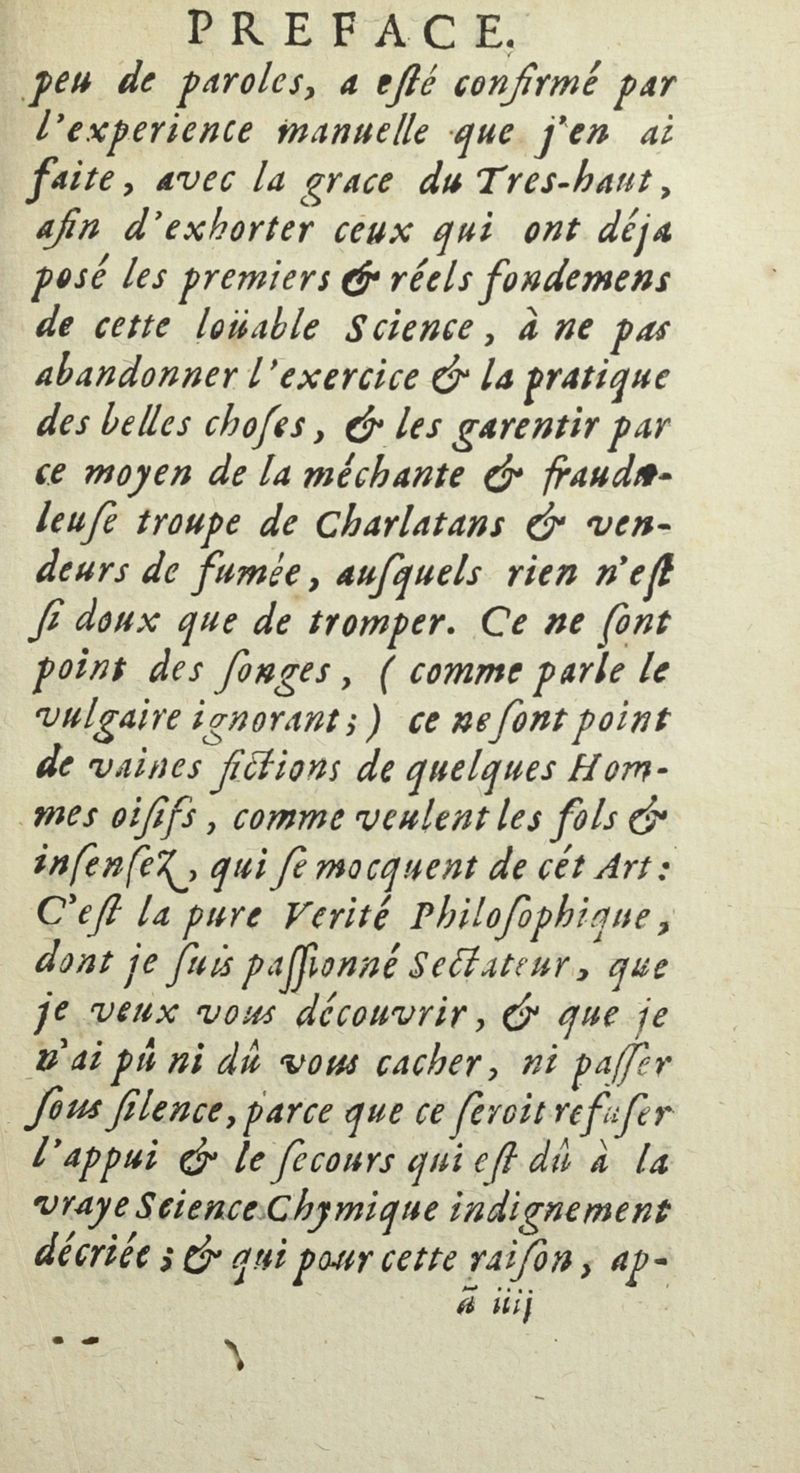 PREFACE.
peu de paroles, a eſté confirmé par
l'experience manuelle que j'en ai
faite, avec la grace du Tres-haut,
afin d'exhorter ceux qui ont déja
posé les premiers & réels fondemens
de cette loüable Science, à ne pas
abandonner l'exercice & la pratique
des belles choſes, & les garentir par
ce moyen de la méchante & fraudu-
leuſe troupe de Charlatans & ven-
deurs de fumée, auſquels rien n'eſt
ſi doux que de tromper. Ce ne ſont
point des ſonges, ( comme parle le
vulgaire ignorant; ) ce ne ſont point
de vaines fictions de quelques Hom-
mes oiſifs, comme veulent les fols &
inſenſez, qui ſe mocquent de cét Art:
C'eſt la pure Verité Philoſophique,
dont je ſuis paſſionné Sectateur, que
je veux vous découvrir, & que je
n'ai pû ni dû vous cacher, ni paſſer
ſous ſilence, parce que ce ſeroit refuſer
l'appui & le ſecours qui eſt dû à la
vraye Science Chymique indignement
décriée; & qui pour cette raiſon, ap-
ã iiij